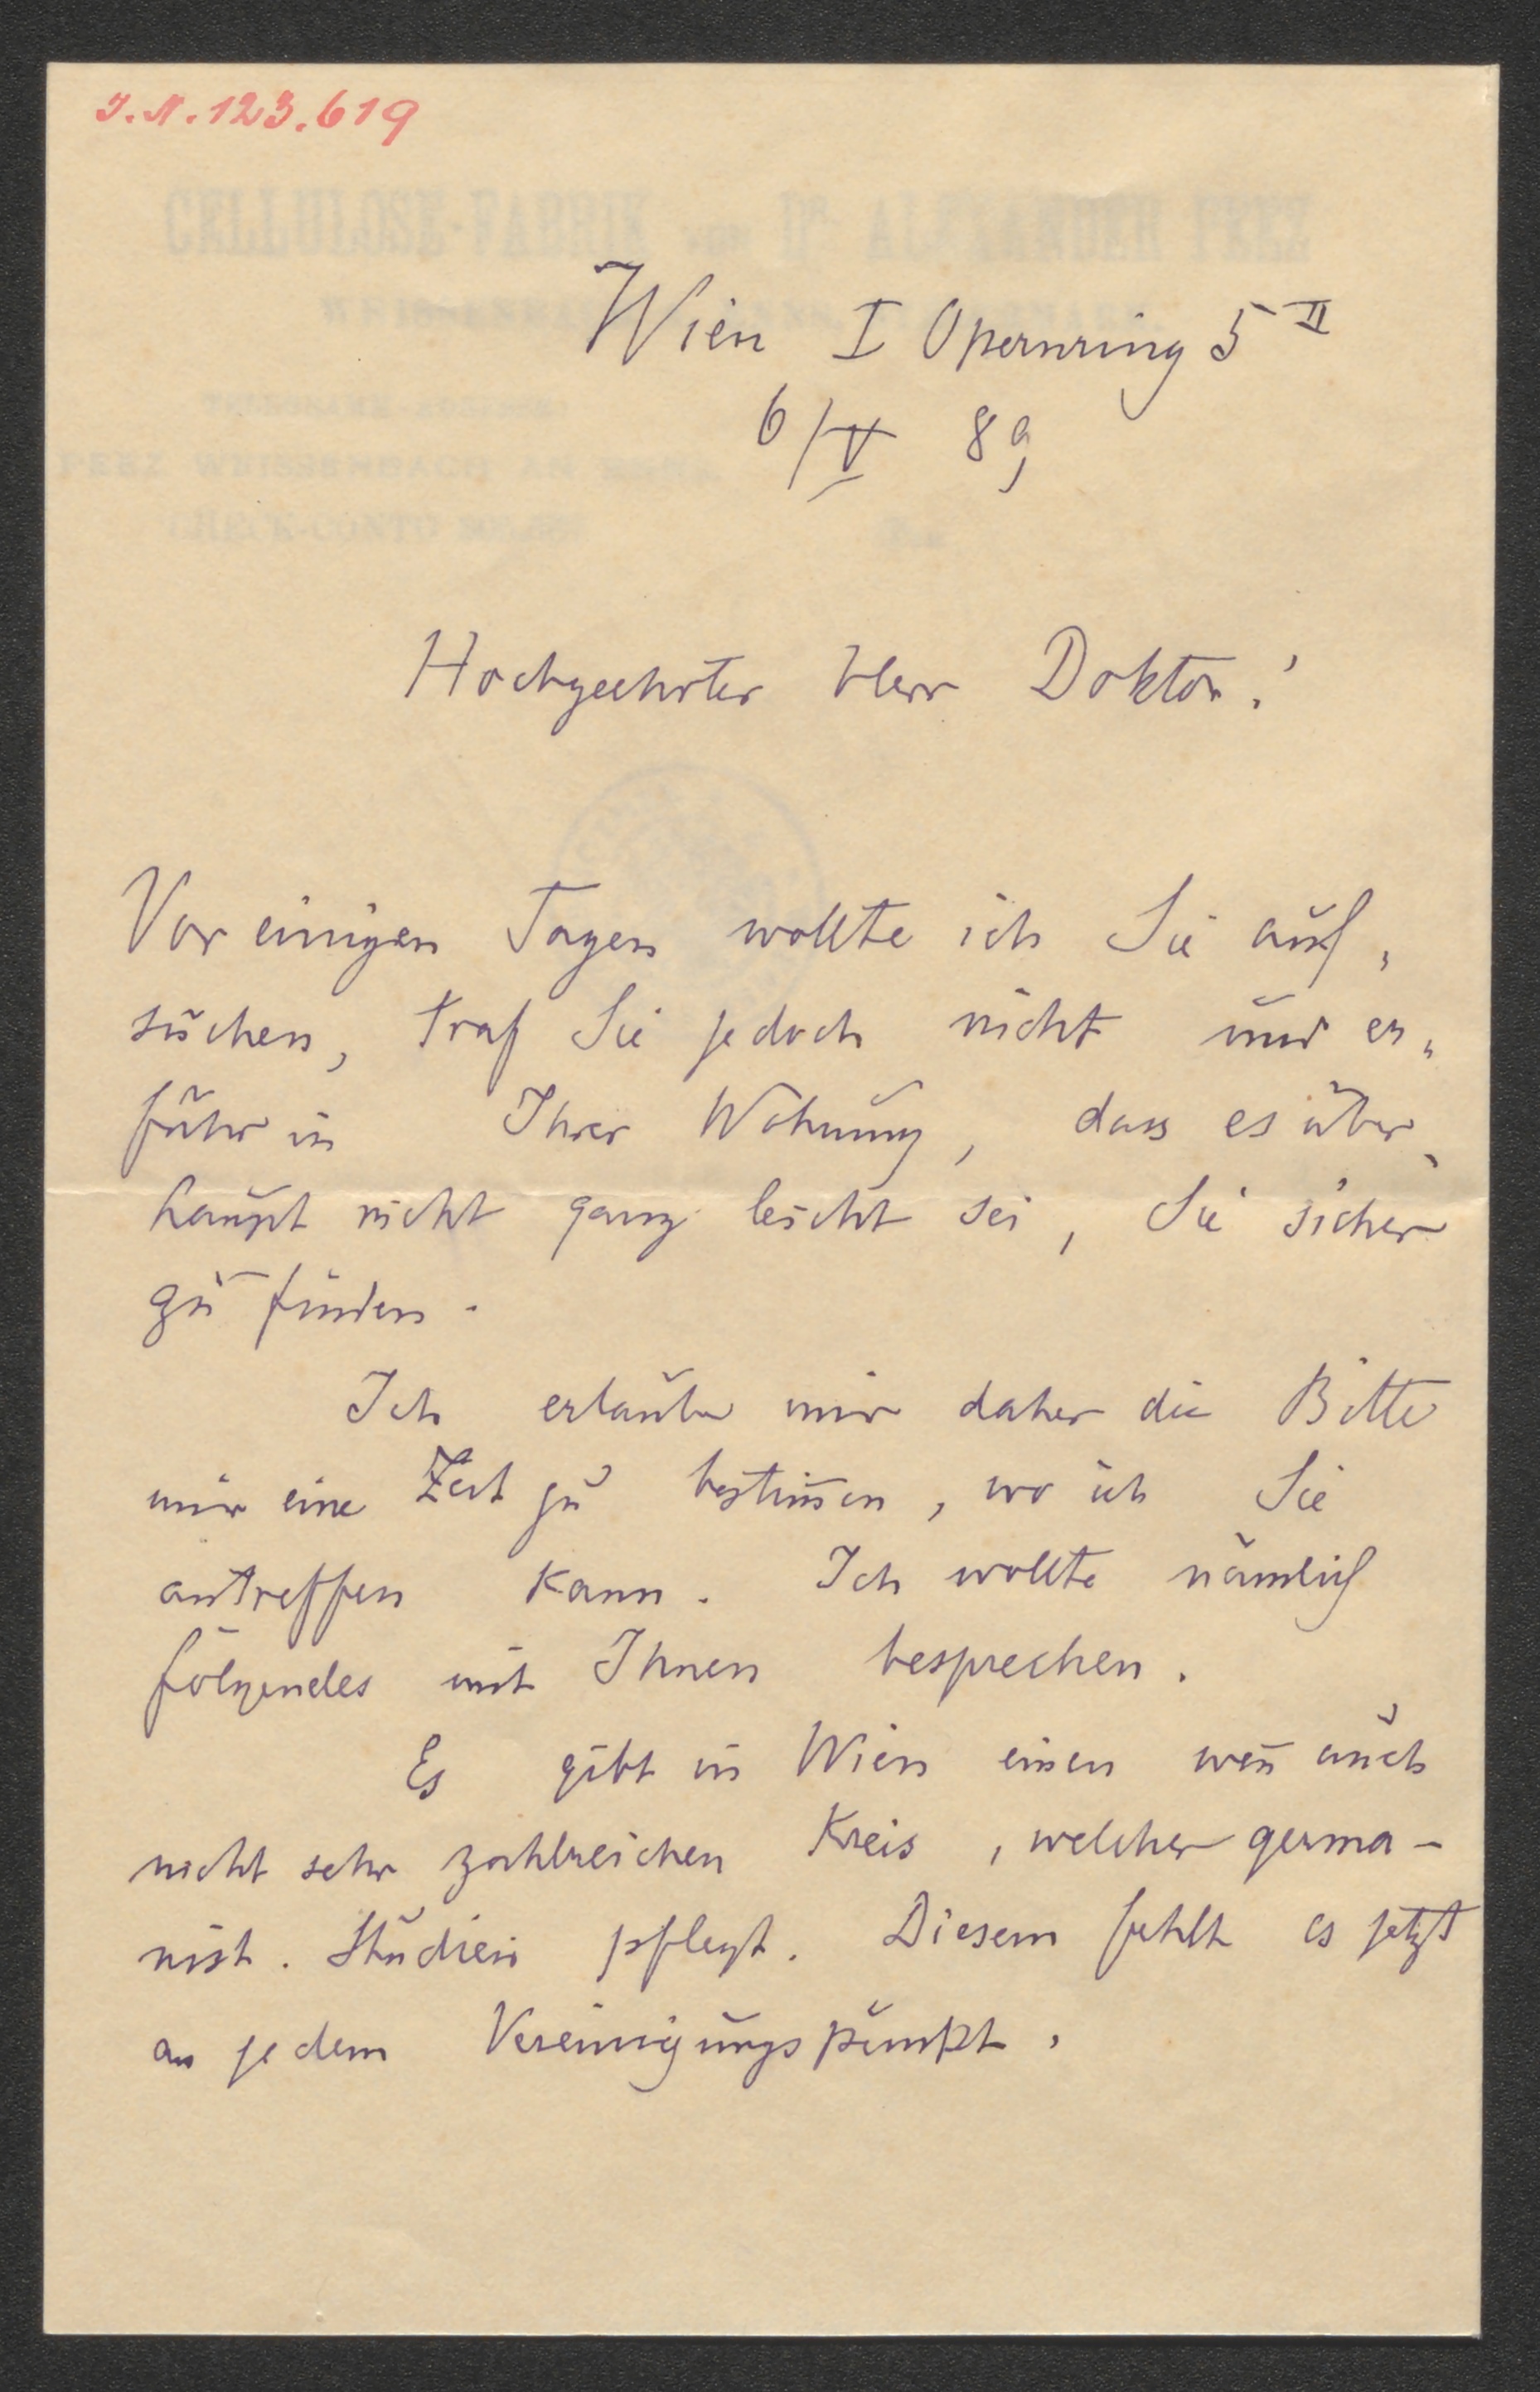 J.N. 123.619
CELLULOSE-FABRIK VON DR ALEXANDER PEEZ
CHECK-CONTO
Wien I Opernring 5 II
6/V 89
Hochgeehrter Herr Doktor!
Vor einigen Tagen wollte ich Sie auf„
suchen, traf Sie jedoch nicht und er„
fuhr in Ihrer Wohnung, dass es über„
haupt nicht ganz leicht sei, Sie sicher
zu finden.
Ich erlaube mir daher die Bitte
mir eine Zeit zu bestim̅en, wo ich Sie
antreffen kann. Ich wollte nämlich
folgendes mit Ihnen besprechen.
Es gibt in Wien einen wen̅ auch
nicht sehr zahlreichen Kreis, welcher germa-
nist. Studien pflegt. Diesem fehlt es jetzt
an jedem Vereinigungspunkt.